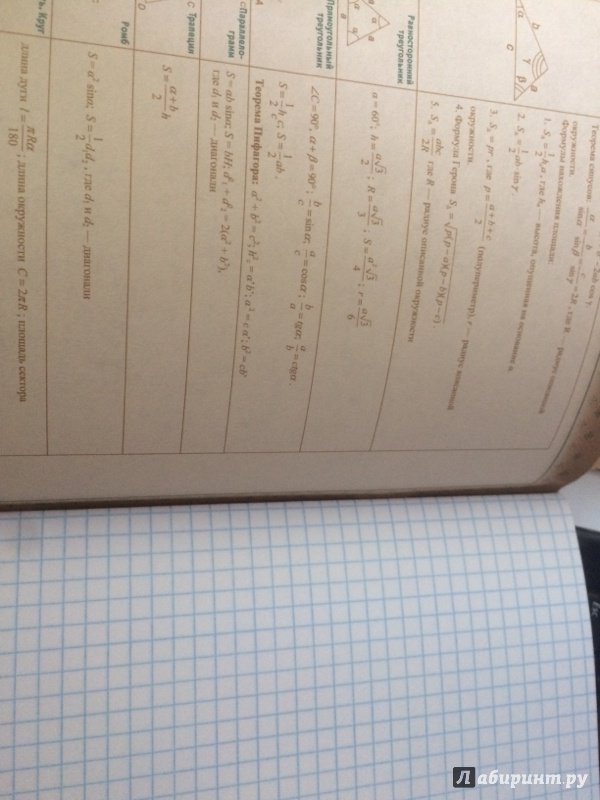 - 2ab cos γ
Теорема синусов: a/sinα = b/sinβ = c/sinγ = 2R, где R — радиус описанной
окружности.
Формулы нахождения площади:
1. Sₐ = 1/2 hₐa, где hₐ — высота, опущенная на основание a.
2. Sₐ = 1/2 ab sin γ.
3. Sₐ = pr, где p = (a + b + c)/2 (полупериметр), r — радиус вписанной
окружности.
4. Формула Герона Sₐ = √p(p − a)(p − b)(p − c)
5. Sₐ = abc/2R где R — радиус описанной окружности
Равносторонний
треугольник
α = 60°; h = a√3/2; R = a√3/3; S = a²√3/4; r = a√3/6
Прямоугольный
треугольник
∠C = 90°, α + β = 90°; b/c = sinα; a/c = cosα; b/a = tgα; a/b = ctgα.
S = 1/2 h c; S = 1/2 ab.
Теорема Пифагора: a² + b² = c²;
Параллело-
грамм
S = ab sinα; S = bH; d²₁ + d²₂ = 2(a² + b²),
где d₁ и d₂ — диагонали
Трапеция
S = (a + b)/2 h
Ромб
S = a² sinα; S = 1/2 d₁d₂, где d₁ и d₂ — диагонали
Круг
длина дуги l = πRα/180; длина окружности C = 2πR; площадь сектора
Лабиринт.ру